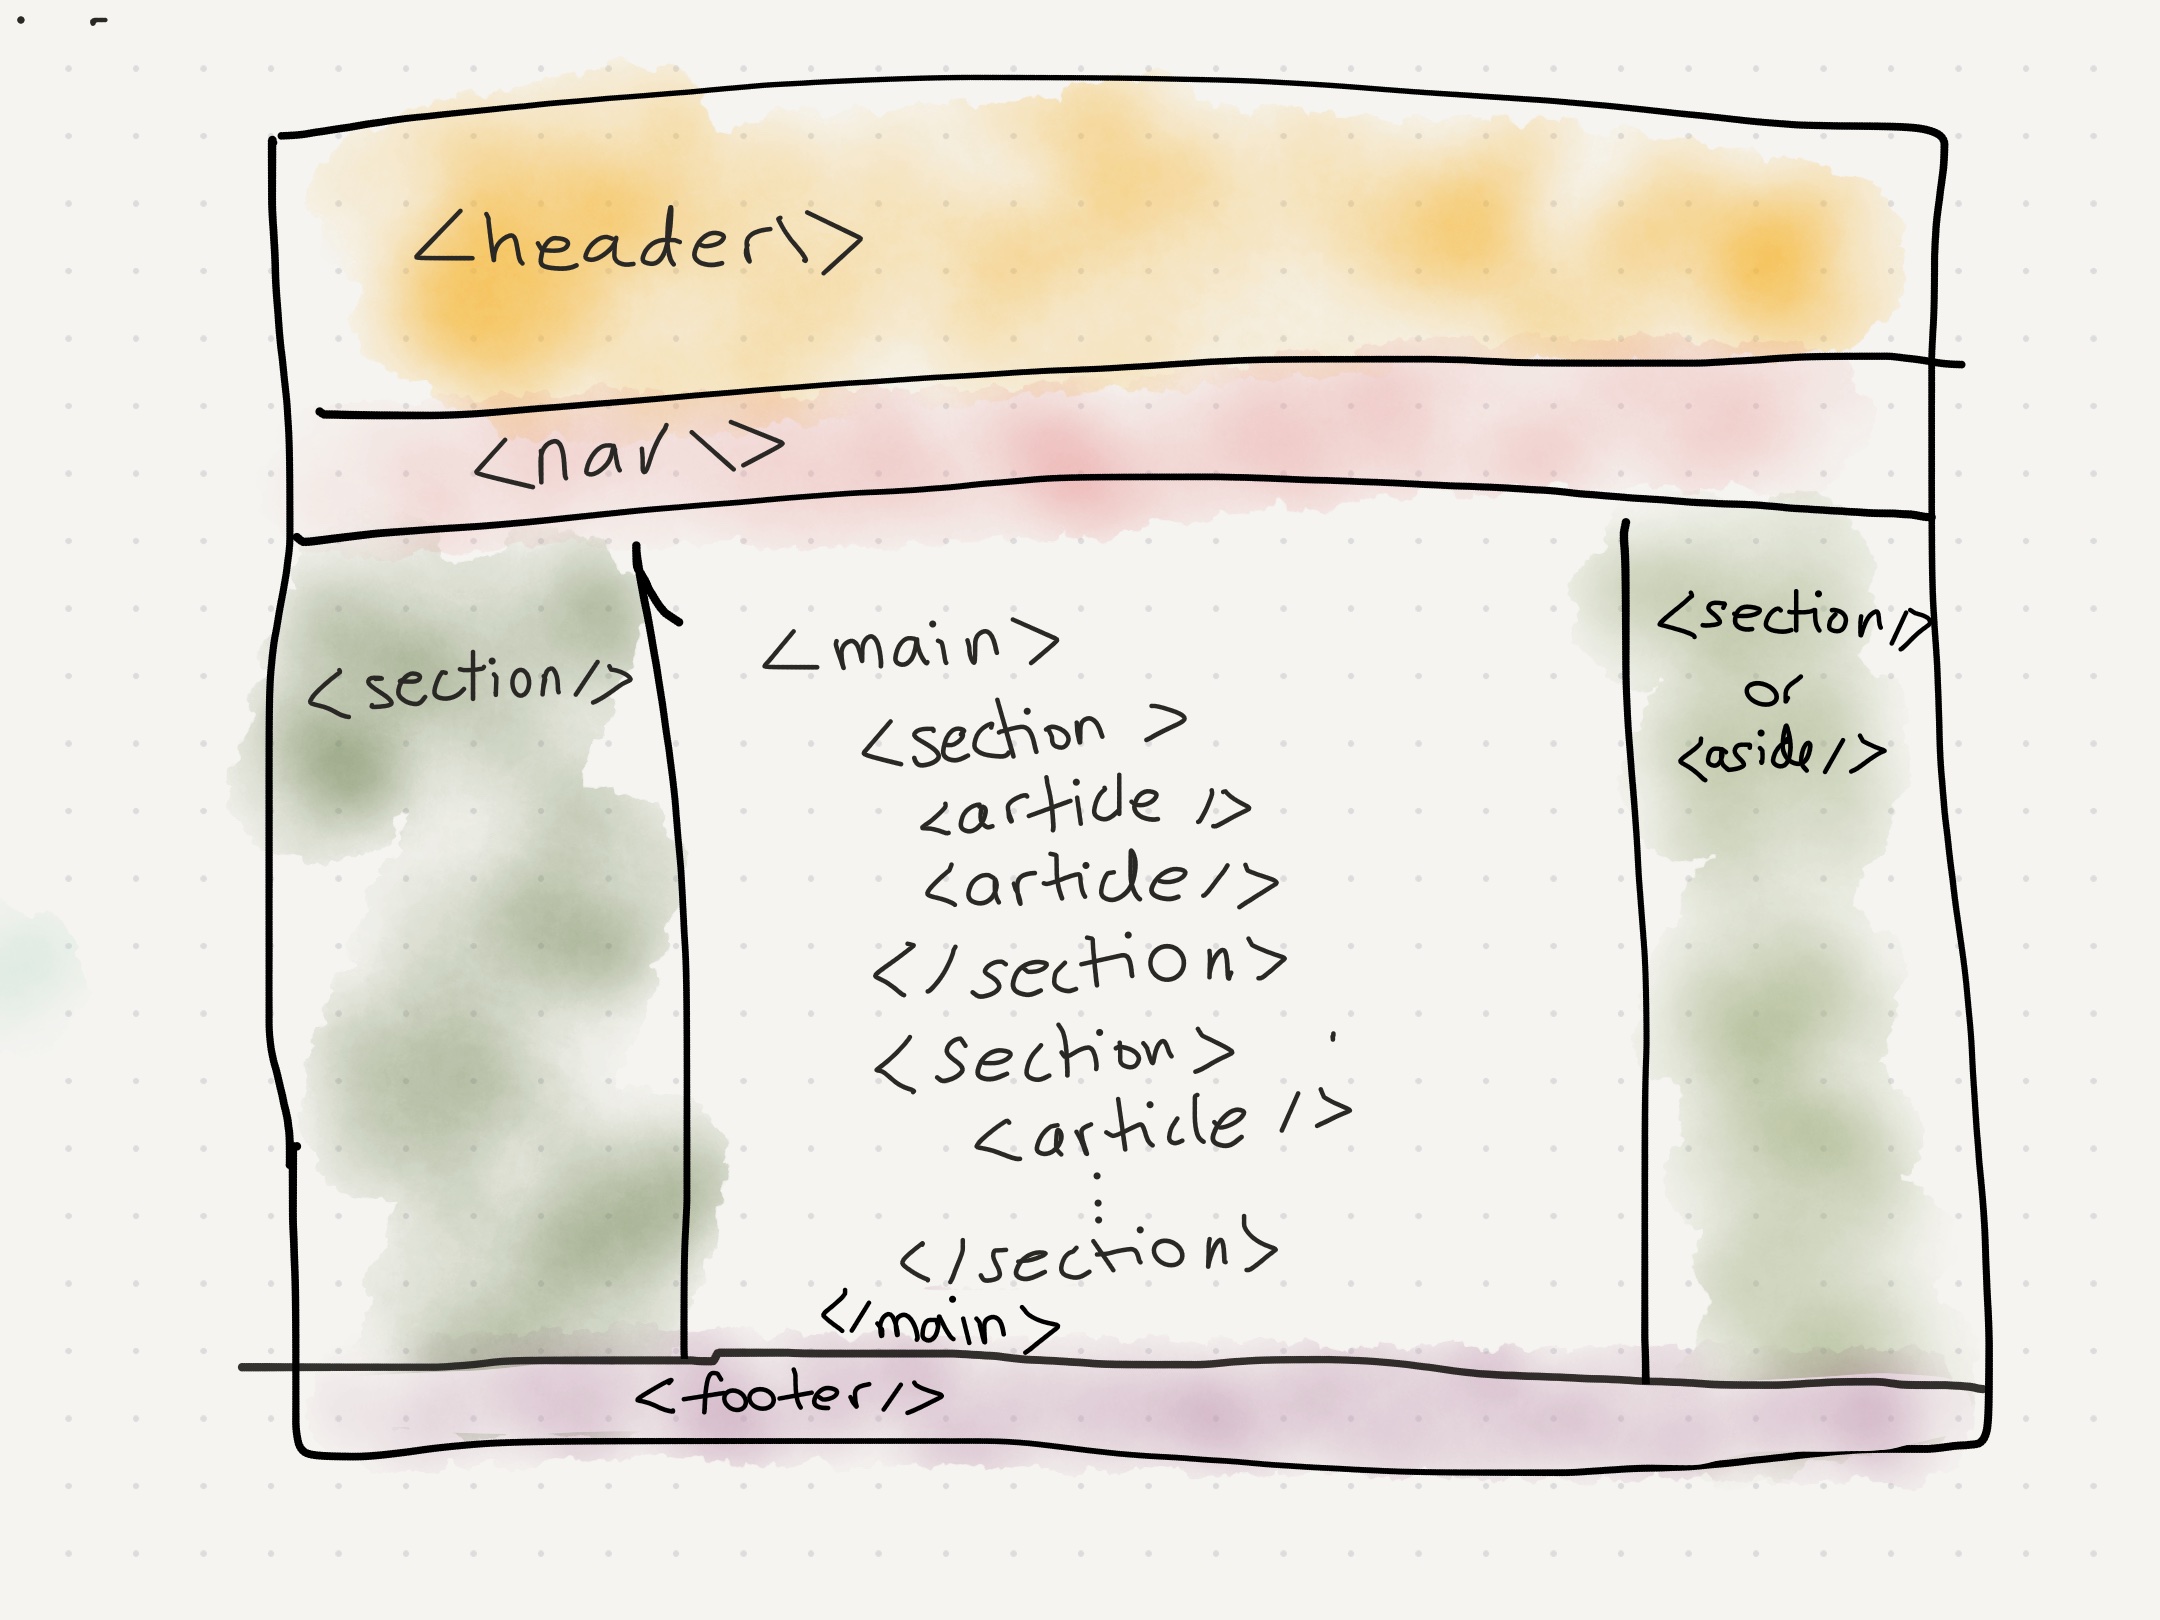 <header\>
<nav\>
<section/>
<main>
<section >
<article />
<article/>
</section>
<section>
<article />
</section>
</main>
<section/>
or
<aside/>
<footer/>